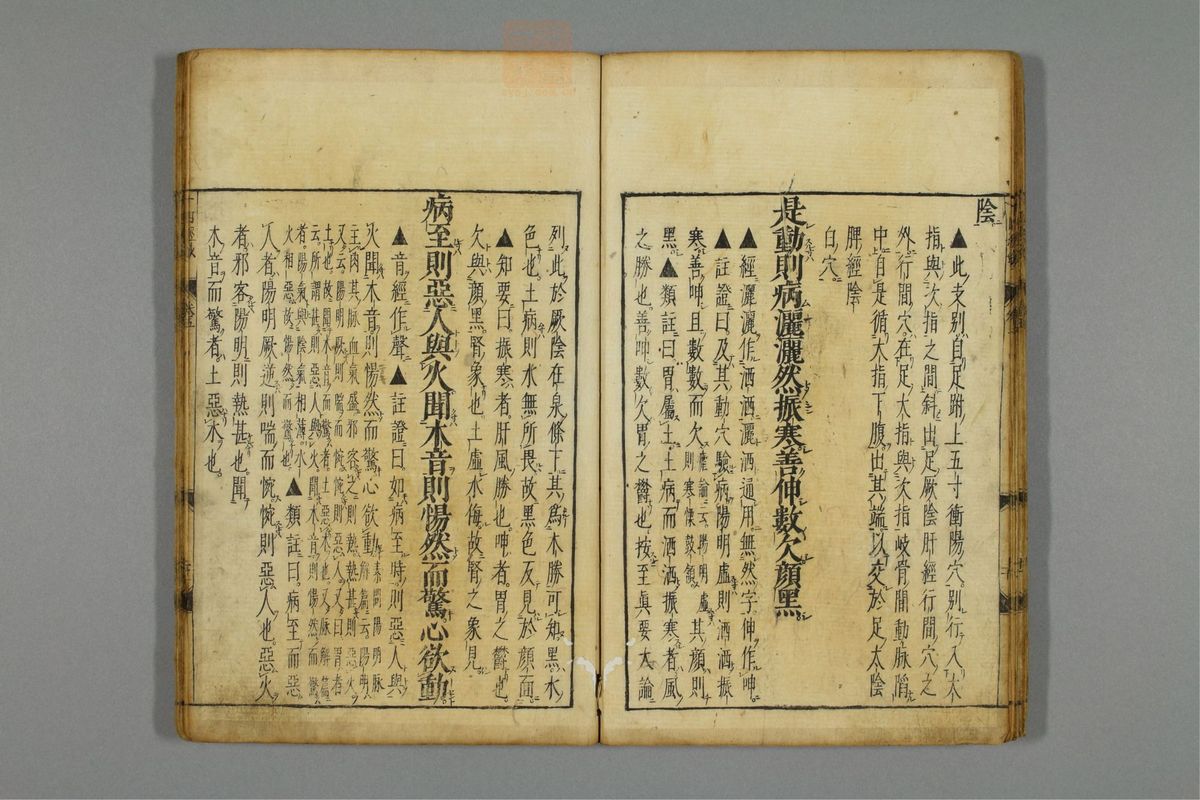 陰
▲此支别自足跗上五寸衝陽穴别行入大
指與次指之間斜出足厥陰肝經行間穴之
外行間穴在足大指與次指岐骨間動脉陷
中自是循大指下腹出其端以交於足太陰
脾經陰
白穴
是動則病灑灑然振寒善伸數欠顔黒
▲經灑灑作洒洒灑洒通用無然字伸作呻
▲註證曰及其動穴驗病陽明虚則洒洒振
寒善呻且數數而欠瘧論云陽明虚則寒慄鼓頷其顔則
黒▲類註曰胃屬土土病而洒洒振寒者風
之勝也善呻數欠胃之鬱也按至眞要大論
列此於厥陰在泉條下其為木勝可知黒水
色也土病則水無所畏故黒色反見於顔面
▲知要曰振寒者肝風勝也呻者胃之鬱也
欠與顔黒腎象也土虚水侮故腎之象見
病至則惡人與火聞木音則愓然而驚心欲動
▲音經作聲▲註證曰如病至時則惡人與
火聞木音則愓然而驚心欲動素問陽明脉解篇云陽明
主肉其脉血氣盛邪客之則熱熱甚則惡火
又云陽明厥則喘而惋惋則惡人又曰胃者
土也故聞木音而驚者土惡木也又脉解篇
云所謂甚則惡人與火聞木音則愓然而驚
者陽氣與陰氣相薄水火相惡故愓然而驚也▲類註曰病至而惡
人者陽明厥逆則喘而惋惋則惡人也惡火
者邪客陽明則熱甚也聞
木音而驚者土惡木也